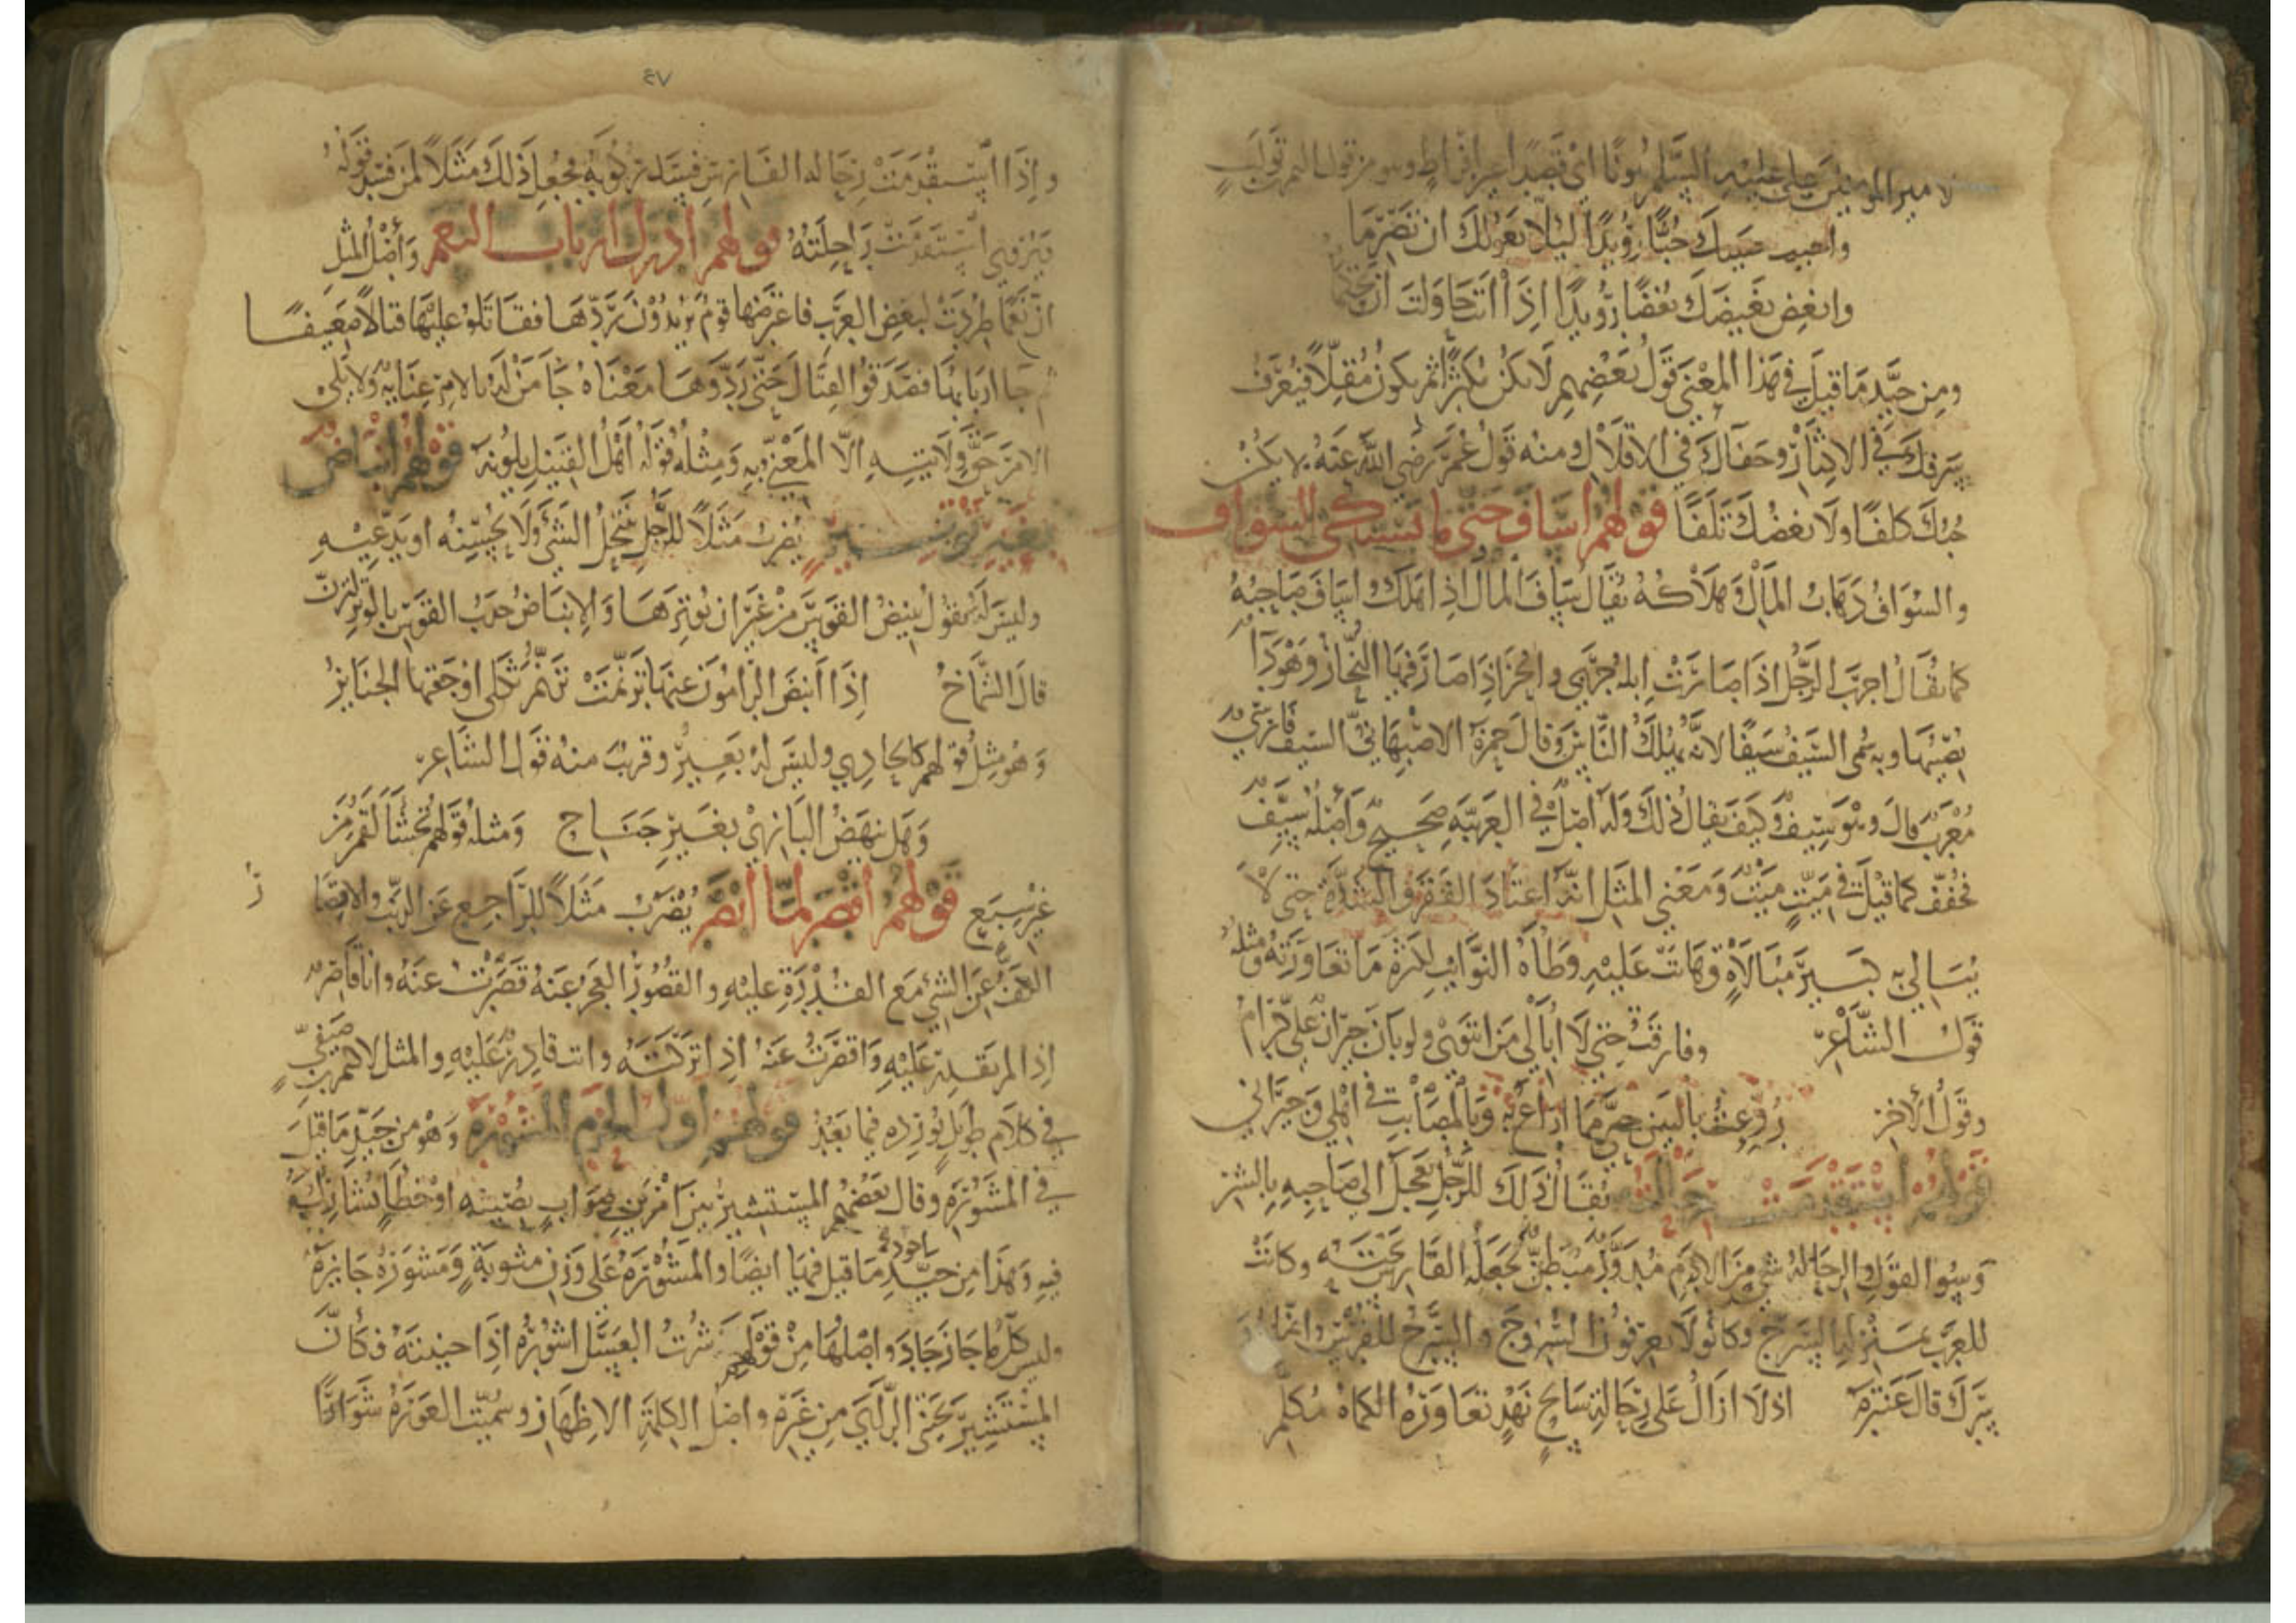 لامير المومنين علي عليه السلم هونا اي قصدا غير افراط وهو من قول النمر بن تولب
واحبب حبيبك حبا رويدا ليلا يعولك ان تصرما
وابغض بغيضك بغضا رويدا اذا انت حاولت ان تحكما
ومن جيد ما قيل في هذا المعني قول بعضهم لا تكن مكثرا ثم تكون مقلا فيعرف
سرفك في الاكثار وجفاك في الاقلال ومنه قول عمر رضي الله عنه لا يكن
حبك كلفا ولا بغضك تلفا قولهم اساف حتى ما يشتكي السواف
والسواف ذهاب المال وهلاكه يقال ساف المال اذا هلك واساف صاحبه
كما يقال اجرب الرجل اذا صارت ابله جربي وانحز اذا صار فيها النحاز وهو دآ
يصيبها وبه سمي السيف سيفا لانه يهلك الناس وقال حمزة الاصبهاني السيف فارسي
معرب قال وهو سيف وكيف يقال ذلك وله اصل في العربية صحيح واصله سيف
فخفف كما قيل في ميت ميت ومعني المثل انه اعتاد الفقر والشدة حتى لا
يبالي به كبير مبالاة وهانت عليه وطاة النوايب لكثرة ما تعاورته ومثله
قول الشاعر وفارقت حتى لا ابالي من انتوى ولو بان جيران علي كرام
وقول الاخر روعت بالبين حتى ما اراع به وبالمصايب في اهلي وجيراني
قولهم استقدمت رحالته يقال ذلك للرجل يعجل الى صاحبه بالشر
وسوا القول والرحالة شي من الادم مدور مبطن يجعله الفارس تحته وكانت
للعرب بمنزلة السرج وكانوا لا يعرفون السروج والسرج للفرس
سرك قال عنترة اذ لا ازال على رحالة سابح نهد تعاوره الكماة مكلم
٤٧
واذا استقدمت رحالة الفارس فسد ركوبه فجعل ذلك مثلا لمن فسد قوله
استقدمت راحلته قولهم ادرك ارباب النعم واصل المثل
ان نعما طردت لبعض العرب فاعترضها قوم يريدون ردها فقاتلوا عليها قتالا ضعيفا
ثم جا اربابها فصدقوا القتال حتى ردوها معناه جا من له بالامر عناية ولا يلي
الامر حق ولايته الا المعني به ومثله قوله اهل القتيل يلونه قولهم انباض
بغير توتير يضرب مثلا للرجل ينتحل الشي ولا يحسنه او يدعيه
وليس له يقول ينبض القوس من غير ان يوترها والانباض جذب القوس بالوتر لترن
قال الشماخ اذا انبض الرامون عنها ترنمت ترنم ثكلى اوجعتها الجنايز
وهو مثل قولهم كالحادي وليس له بعير وقريب منه قول الشاعر
وهل ينهض البازي بغير جناح ومثله قولهم تجشا لقمن من
غير شبع قولهم اقصر لما ابصر يضرب مثلا للراجع عن الذنب والاقصا
ر
الكف عن الشي مع القدرة عليه والقصور العجز عنه قصرت عنه وانا قاصر
اذا لم تقدر عليه واقصرت عنه اذا تركته وانت قادر عليه والمثل لاكثم بن صيفي
في كلام طويل نورده فيما بعد قولهم اول الحزم المشورة وهو من جيد ما قيل
في المشورة وقال بعضهم المستشير بين امرين صواب يصيبه او خطا يشارك
فيه وهذا من جيد ما قيل فيها ايضا والمشورة على وزن مثوبة ومشورة جايزة
ماخوذة
وليس كلما جاز جاد واصلها من قولهم شرت العسل اشوره اذا جنيته فكان
المستشير يجني الراي من غيره واصل الكلمة الاظهار وسميت العورة شوارا